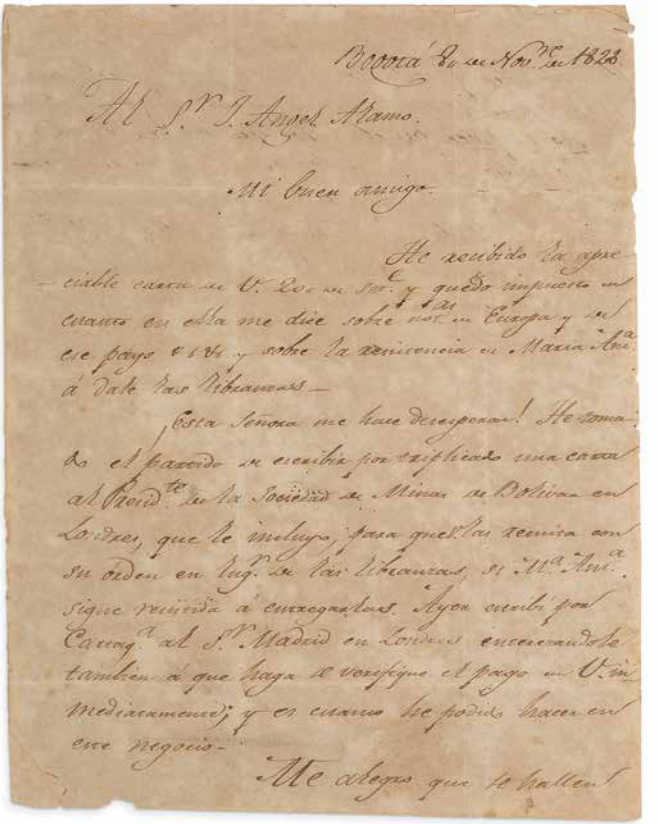 Bogotá 8,, de Nov.re de 1828
Al S.r J. Angel Alamo.
Mi buen amigo.
He recibido la apre
ciable carta de V. 20,, de y quedo impuesto de
cuanto en ella me dice sobre not.as de Europa y de
ese pays y sobre la renitencia de Maria Ant.a
á dale las libranzas —
¡Esta Señora me hace desesperar! He toma
do el partido de escribir por triplicado una carta
al Presid.te de la Sociedad de Minas de Bolivar en
Londres, que le incluyo, para que V. las remita con
su órden en lug.r de las libranzas, si M.a Ant.a
sigue reusida á entregarlas. Ayer escribí por
Cartag.a al S.r Madrid en Londres interesandole
tambien á que haga se verifique el pago de V. in
mediatamente; y es cuanto he podido hacer en
este negocio —
Me alegro que se hallen